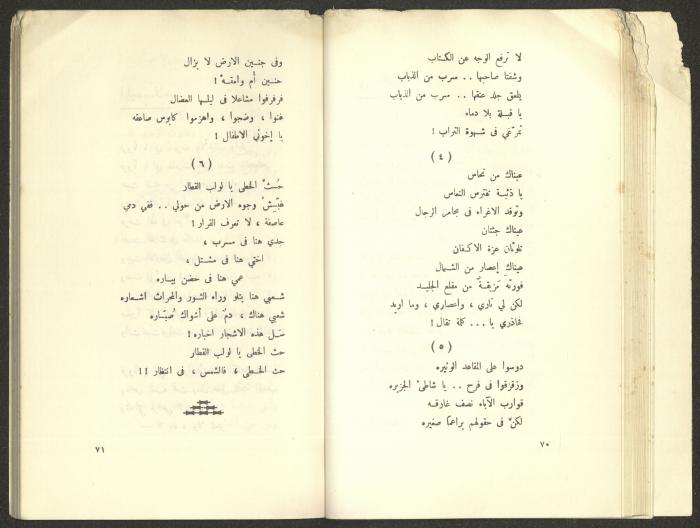 لا ترفع الوجه عن الكتاب
وشفتا صاحبها .. سرب من الذباب
يلعق جلد عنقها .. سرب من الذباب
يا قبلة بلا دماء
تمرّغي في شهوة التراب !
( ٤ )
عيناك من نحاس
يا ذئبة تفترس النعاس
وتوقد الاغراء في مجامر الرجال
عيناك جثتان
تلوّنان عزة الاكفان
عيناكِ إعصار من الشمال
فورته مزيقةٌ من مقلع الجليد
لكن لي ناري ، واعصاري ، وما اريد
فحاذري يا ... كلمة تقال !
( ٥ )
دوسوا على المقاعد الوثيره
وزقزقوا في فرح .. يا شاطئ الجزيره
قوارب الآباء نصف غارقه
لكنّ في حقولهم براعماً صغيره
٧٠
وفي جنين الارض لا يزال
حنين أم وامقهْ !
فرفرفوا مشاعلا في ليلها العضال
غنوا ، وضجوا ، واهزموا كابوس صاعقه
يا إخوتي الاطفال !
( ٦ )
حُثّ الخطى يا لولب القطار
هَيّيشْ وجوه الارض من حولي .. ففي دمي
عاصفة ، لا تعرف القرار !
جدي هنا في مسرب ،
اختي هنا في مشتل ،
عمي هنا في حضن بياره
شعبي هنا يتلو وراء الثور والمحراث اشعاره
شعبي هناك ، دمٌ على أشواك صُبّاره
سَل هذه الاشجار اخباره !
حث الخطى يا لولب القطار
حث الخطى ، فالشمس ، في انتظار !!
٧١